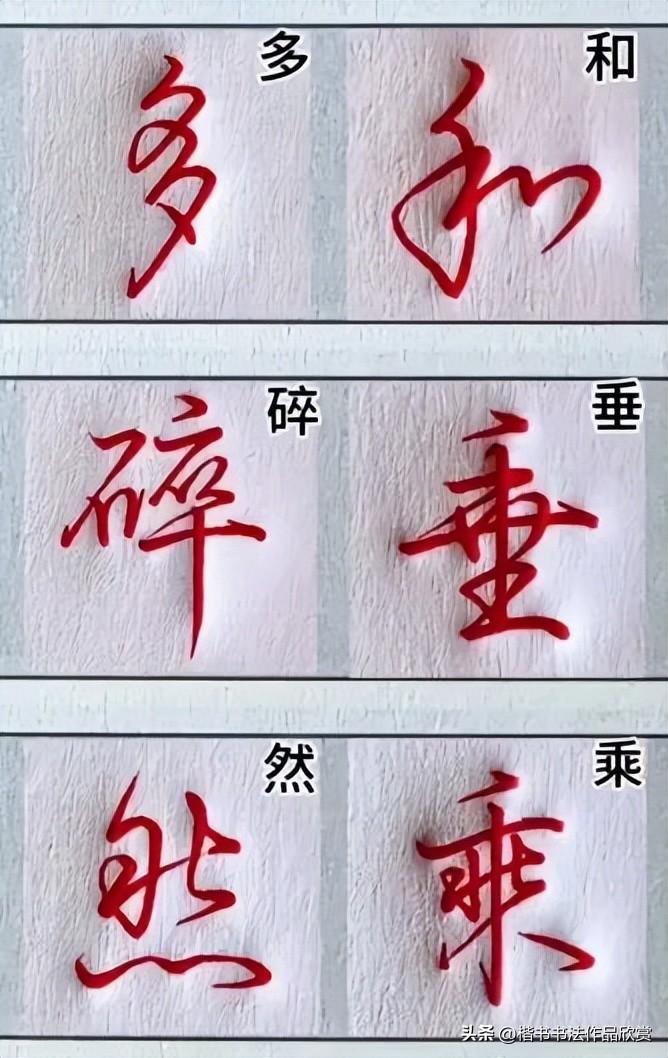 多 和
多 和
碎 垂
碎 垂
然 乘
然 乘
头条 @楷书书法作品欣赏